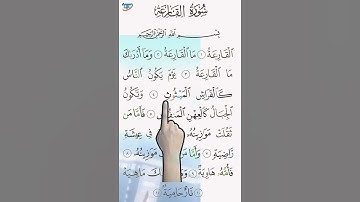 سُورَةُ القَارِعَةِ
بِسْمِ اللَّهِ الرَّحْمَٰنِ الرَّحِيمِ
الْقَارِعَةُ ١ مَا الْقَارِعَةُ ٢ وَمَا أَدْرَىٰكَ
مَا الْقَارِعَةُ ٣ يَوْمَ يَكُونُ النَّاسُ
كَالْفَرَاشِ الْمَبْثُوثِ ٤ وَتَكُونُ
الْجِبَالُ كَالْعِهْنِ الْمَنفُوشِ فَأَمَّا مَن
ثَقُلَتْ مَوَٰزِينُهُ فِي عِيشَةٍ
رَّاضِيَةٍ وَأَمَّا مَوَٰزِينُهُ
فَأُمُّهُ هَاوِيَةٌ كَ مَا هِيَهْ
نَارٌ حَامِيَةٌ